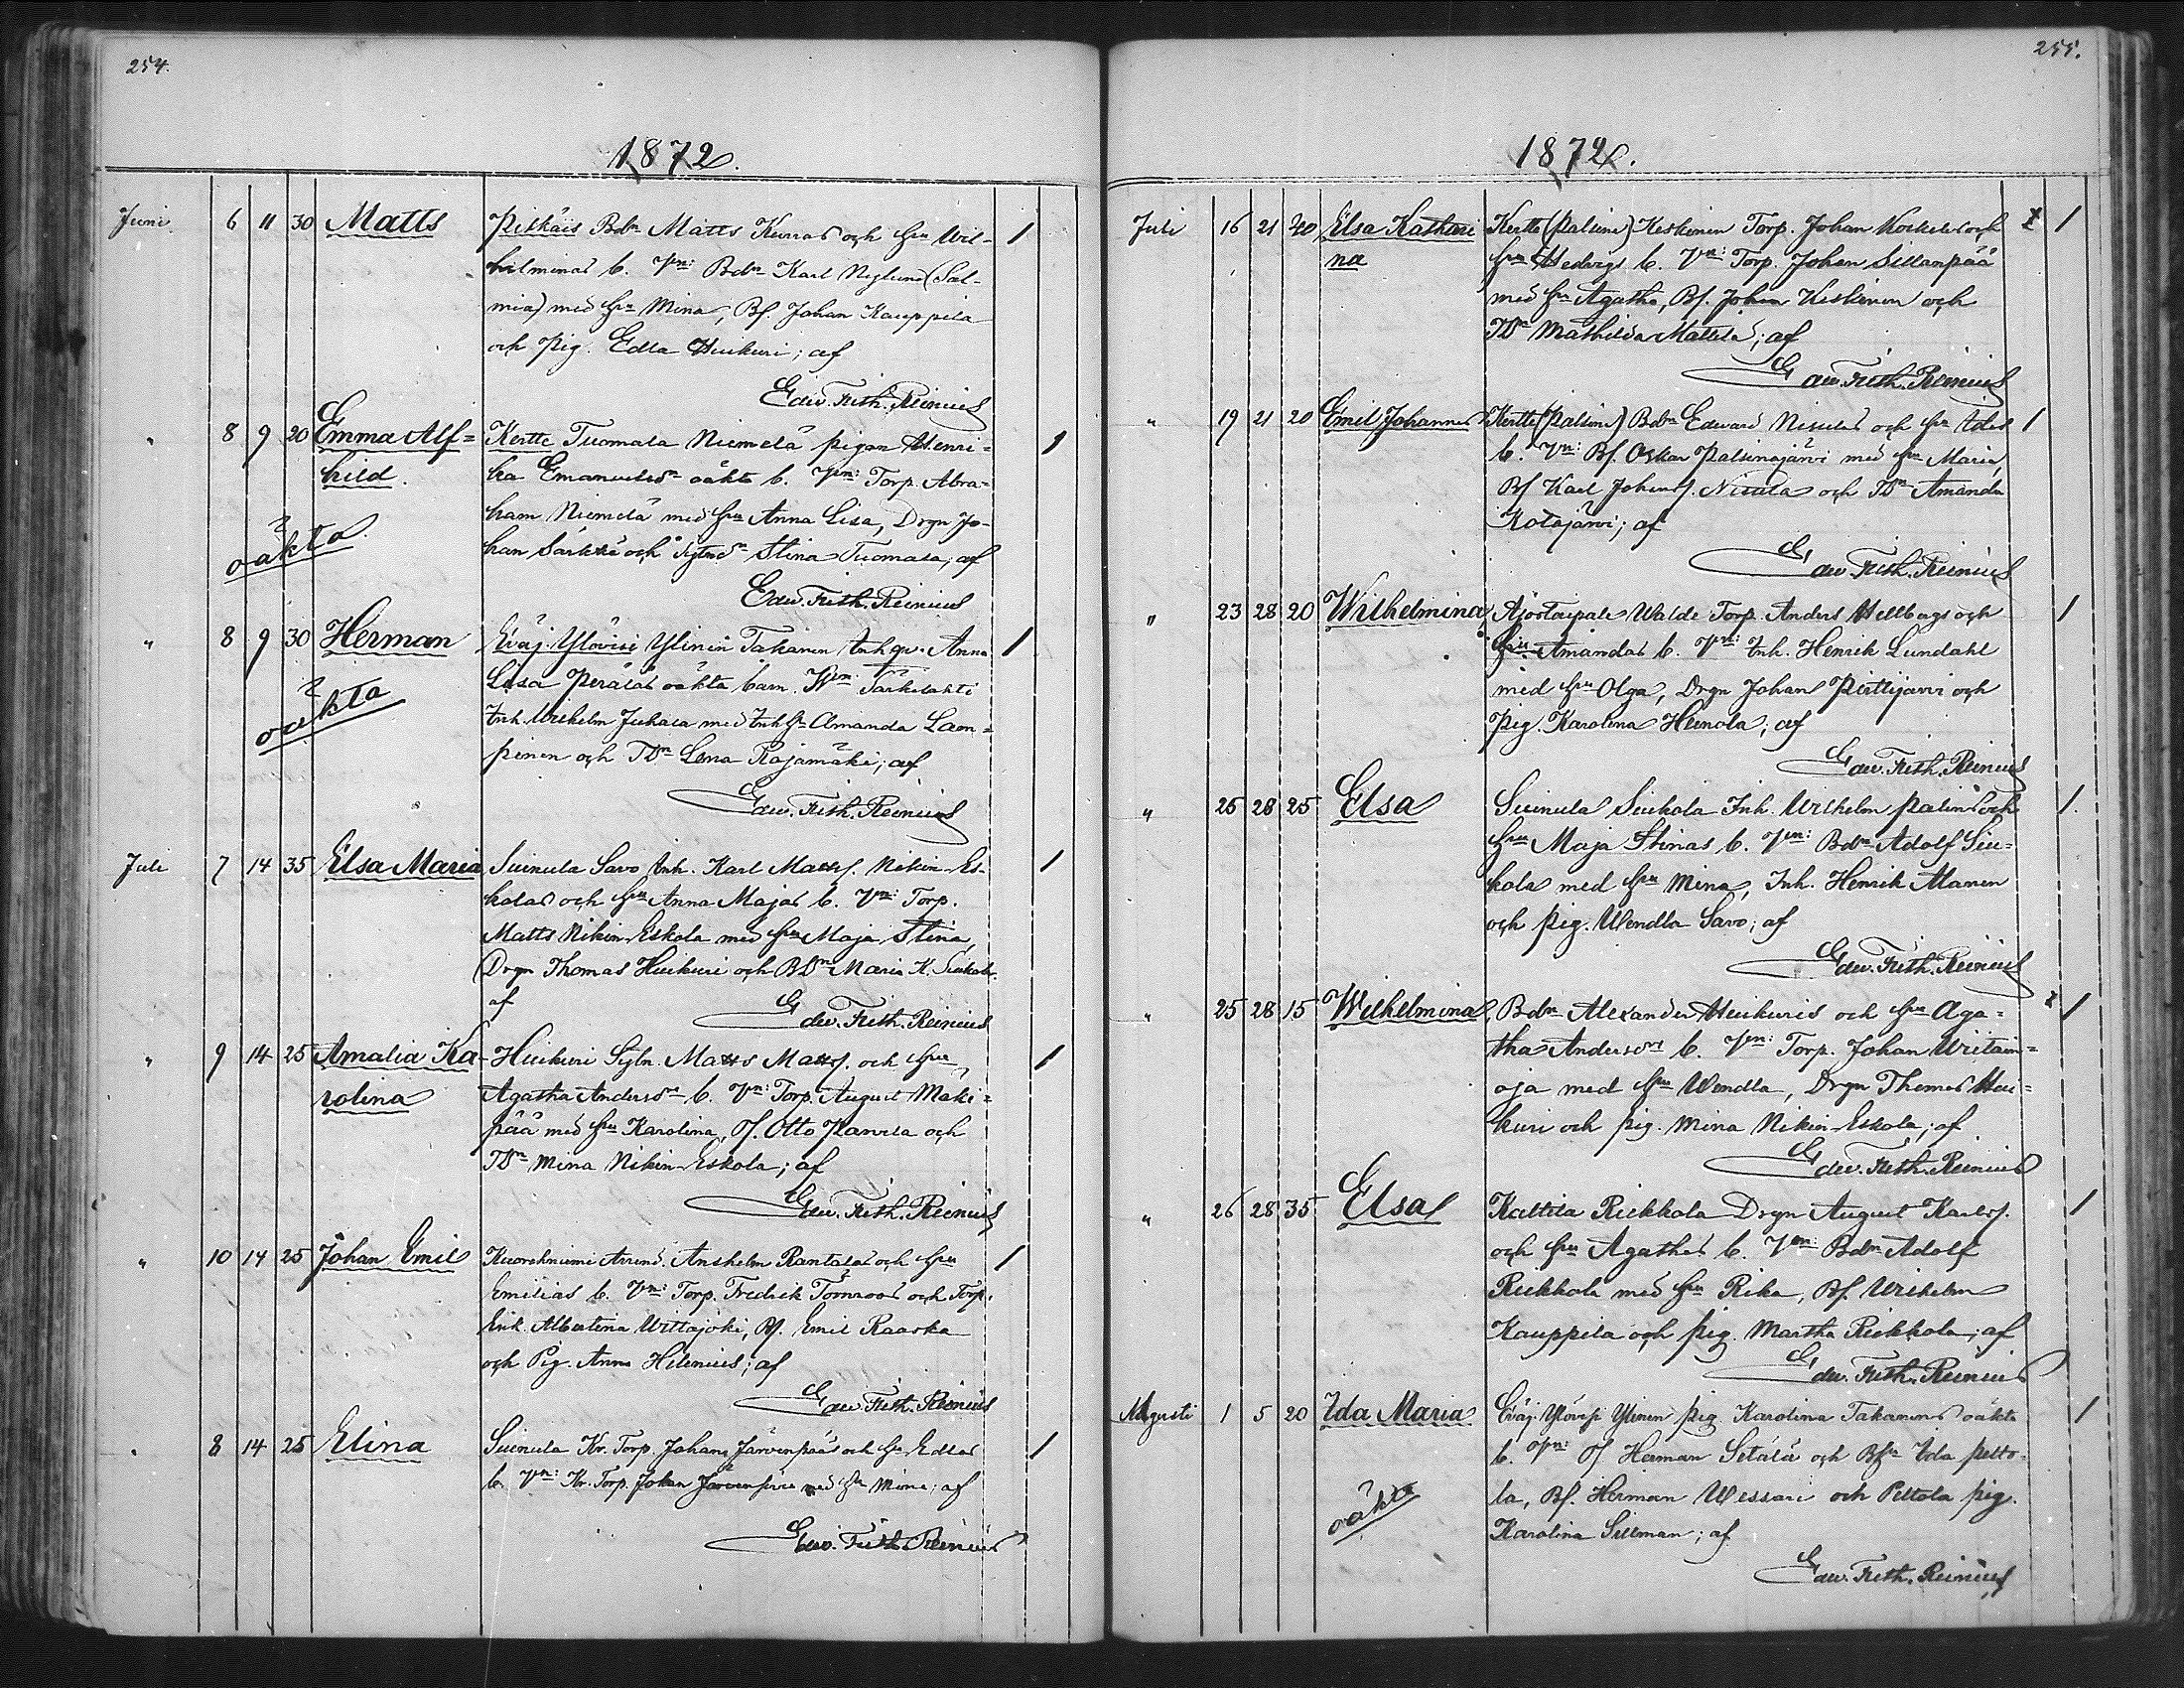 254.
1872.
Juni 6 11 30 Matts Pitkäis Bdn Matts Kurras och hu Wil-
helminas b. Vn: Bdn Karl Nylund (Sal-
mia) med hu Mina, Bs. Johan Kauppila
och Pig. Edla Huikuri; af
Edw. Frith. Reinius
" 8 9 20 Emma Alf= Kertte Tuomala Niemelä pigan Henri=
hild. ka Emanuelsdr oäkta b. Vn: Torp. Abra=
ham Niemelä med hu Anna Lisa, Drgn Jo-
oäkta. han Särkkä och Sytndr Stina Tuomala; af
Edw. Frith. Reinius
" 8 9 30 Herman Eväj. Ylöviri Ylinin Takanen Inhqv. Anna
Lisa Peräläs oäkta barn. Wn: Särkilahti
oäkta Inh. Wilhelm Juhala med Inh hu Amanda Laon=
pinen och TDr Lena Rajamäki; af
Edw. Frith. Reinius
Juli 7 14 35 Elsa Maria Suinula Savo Inh. Karl Mattss. Nikin-Es-
kolas och hu Anna Majas b. Vn: Torp.
Matts Nikin-Eskola med hu Maja Stina,
Drgn Thomas Huikuri och BDr Maria K. Siukola
af Edw. Frith. Reinius
" 9 14 25 Amalia Ka- Huikuri Sytn. Matts Mattss. och hu
rolina Agatha Andersdr b. Vn: Torp. August Mäki=
pää med hu Karolina, Bs. Otto Panula och
TDr Mina Nikin-Eskola; af
Edw. Frith. Reinius
" 10 14 25 Johan Emil Kuorehniemi Arrend. Anshelm Rantalas och hu
Emilias b. Vn: Torp. Fredrik Törnroos och Torp.
Enk. Albertina Wittajoki, Bs. Emil Raaska
och Pig. Anna Helenius; af
Edw. Frith. Reinius
" 8 14 25 Elina Suinula Kr. Torp. Johan Järvenpääs och hu Edlas
b. Vn: Kr. Torp. Johan Järvenpää med hu Mina; af
Edw. Frith. Reinius
255.
1872.
Juli 16 21 40 Elsa Kathari Kertte (Palsina) Keskinen Torp. Johan Koskelas och
na hu Hedvigs b. Vn: Torp. Johan Sillanpää
med hu Agatha, Bs. Johan Keskinen och
TDr Mathilda Mattila; af
Edw. Frith. Reinius
" 19 21 20 Emil Johannes Kertte (Palsina) Bdn Edward Nisulas och hu Idas
b. Vn: Bs. Oskar Palsinajärvi med hu Maria,
Bs Karl Johans. Nisula och TDr Amanda
Kotajärvi; af
Edw. Frith. Reinius
" 23 28 20 Wilhelmina Ajostaipale Walde Torp. Anders Hellbergs och
hu Amandas b. Vn: Inh. Henrik Lundahl
med hu Olga, Drgn Johan Pirttijärvi och
Pig. Karolina Heinola; af
Edw. Frith. Reinius
" 25 28 25 Elsa Suinula Siukola Inh. Wilhelm Palins och
hu Maja Stinas b. Vn: Bdn Adolf Siu=
kola med hu Mina, Inh. Henrik Alanen
och Pig. Wendla Savo; af
Edw. Frith. Reinius
" 25 28 15 Wilhelmina Bdn Alexander Huikuris och hu Aga=
tha Andersdrs b. Vn: Torp. Johan Wiitain=
oja med hu Wendla, Drgn Thomas Hui=
kuri och pig. Mina Nikin-Eskola; af
Edw. Frith. Reinius
" 26 28 35 Elsa Kaltila Riekkola Drgn August Karlss.
och hu Agathas b. Vn: Bdn Adolf
Riekkola med hu Rika, Bs. Wilhelm
Kauppila och pig. Martha Riekkola; af
Edw. Frith. Reinius
Augusti 1 5 20 Ida Maria Eväj. Ylövesi Ylinen pig. Karolina Takanens oäkta
b. Vn: Bs Herman Setälä och Bhu Ida Pelto-
oäkta la, Bs. Herman Wessari och Peltola pig.
Karolina Sillman; af
Edw. Frith. Reinius